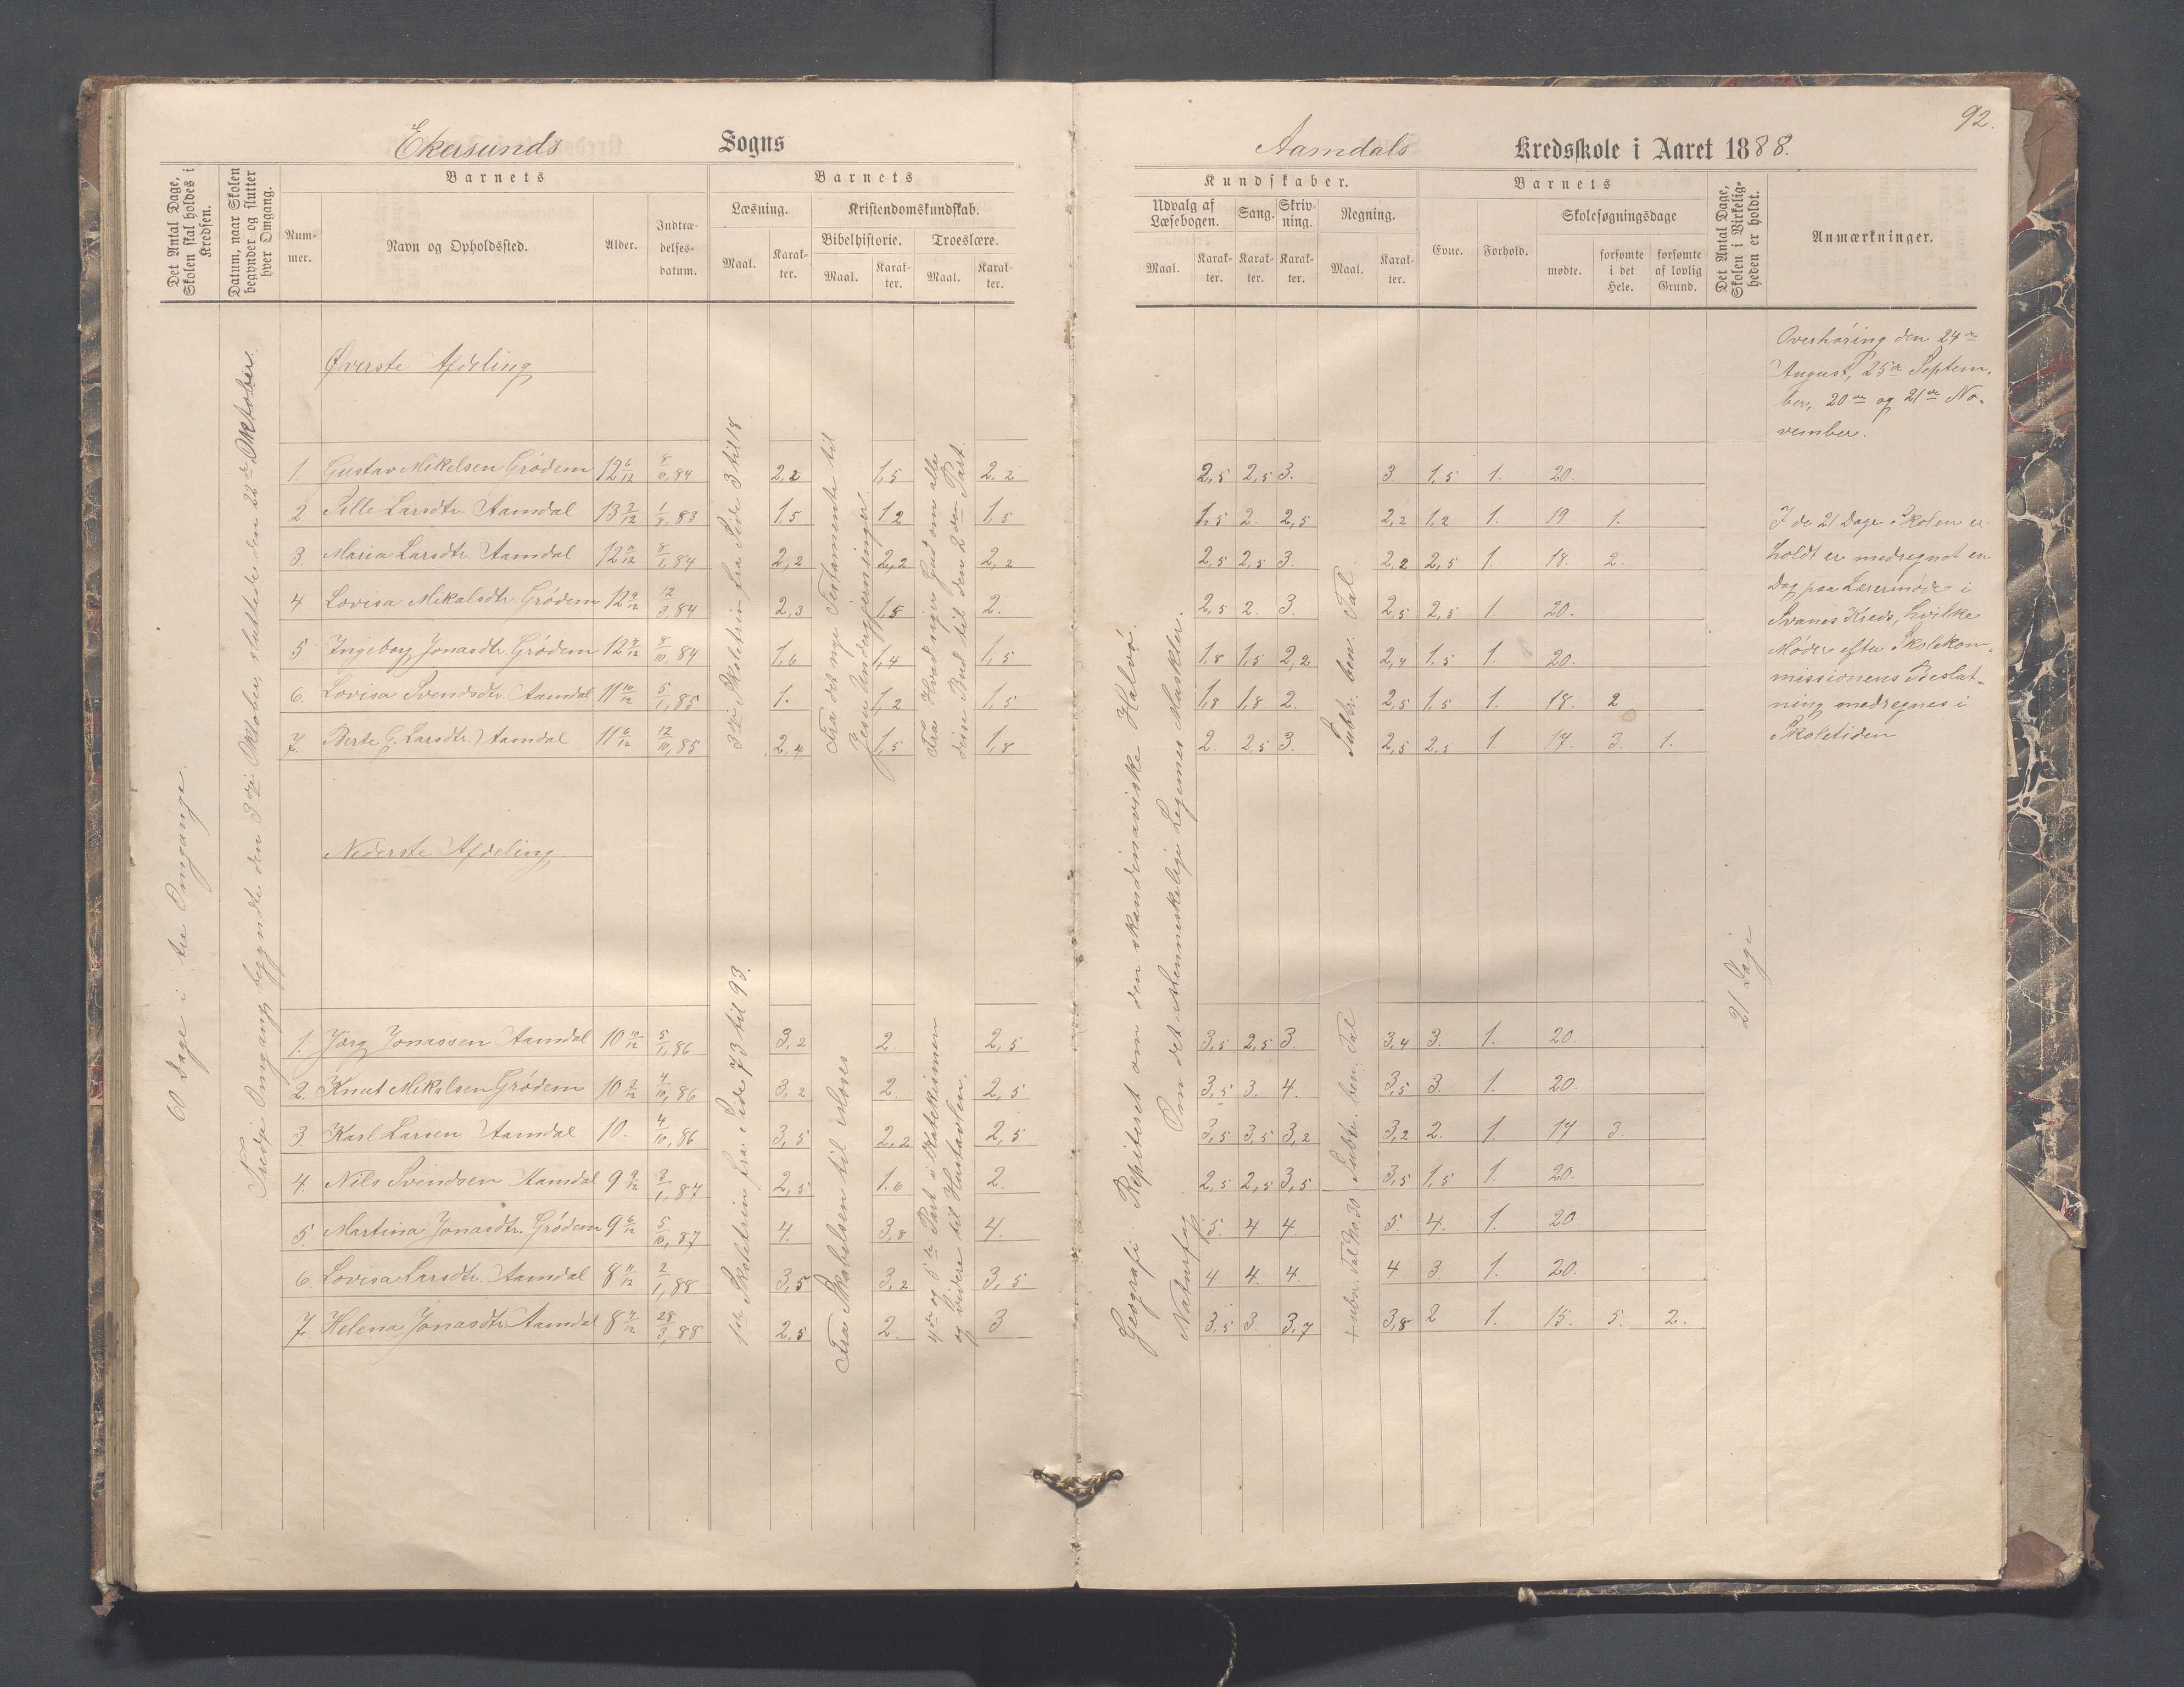 92.
Ekersunds Sogns
Aamdals Kredsskole i Aaret 1888.
Det Antal Dage, Skolen skal holdes i Kredsen.
Datum, naar Skolen begynder og slutter hver Omgang.
Barnets
Num-
mer.
Navn og Opholdssted.
Alder.
Indtræ-
delses-
datum.
Barnets
Læsning.
Maal.
Karak-
ter.
Kristendomskundskab.
Bibelhistorie.
Maal.
Karak-
ter.
Troeslære.
Maal.
Karak-
ter.
Kundskaber.
Udvalg af
Læsebogen.
Maal.
Karak-
ter.
Sang.
Karak-
ter.
Skriv-
ning.
Karak-
ter.
Regning.
Maal.
Karak-
ter.
Barnets
Evne.
Forhold.
Skolesøgningsdage
mødte.
forsømte
i det
Hele.
forsømte
af lovlig
Grund.
Det Antal Dage, Skolen i Virkelig-
heden er holdt.
Anmærkninger.
60 Dage i tre Omgange.
Tredje Omgang begyndte den 3die Oktober, sluttede den 22de Oktober.
Øverste Afdeling
1. Gustav Mikelsen Grødem 12 6/12 8/10,84 2,2 1,5 2,2 2,5 2,5 3. 3. 1,5 1. 20.
2. Sille Larsdtr. Aamdal 13 2/12 1/2,83 1,5 1,2 1,5 1,5 2. 2,5 2,2 1,2 1. 19 1.
3. Maria Larsdtr. Aamdal 12 11/12 8/1,84 2,2 2,2 2,2 2,5 2,5 3. 2,2 2,5 1. 18. 2.
4 Lovisa Mikalsdtr. Grødem 12 9/12 12/3,84 2,3 1,5 2. 2,5 2. 3. 2,5 2,5 1. 20.
5 Ingeborg Jonasdtr. Grødem 12 4/12 8/10,84 1,6 1,4 1,5 1,8 1,5 2,2 2,4 1,5 1. 20.
6. Lovisa Svendsdtr. Aamdal 11 10/12 5/1,85 1. 1,2 1,5 1,8 1,8 2. 2,5 1,5 1. 18. 2
7. Berte G. Larsdtr. Aamdal 11 6/12 12/10,85 2,4 1,5 1,8 2. 2,5 3. 2,5 2,5 1. 17. 3. 1.
3die Skoletrin fra Side 3 til 18
Fra det nye Testamente til
Jesu Undergjerninger
Fra Hvad siger Gud om alle
disse Bud til den 2den Part.
Subtr. ben. Tal.
Geografi: Repiteret om den skandinaviske Halvø.
Naturfag. Om det Menneskelige Legemes Muskler.
Nederste Afdeling
1. Jørg Jonassen Aamdal 10 10/12 5/1,86 3,2 2. 2,5 3,5 2,5 3. 3,4 3. 1. 20.
2. Knut Mikalsen Grødem 10 2/12 4/10,86 3,2 2. 2,5 3,5 3. 4. 3,5 3. 1. 20.
3. Karl Larsen Aamdal 10. 4/10,86 3,5 2,2 2,5 3,5 3,5 3,2 3,2 2. 1. 17 3.
4. Nils Svendsen Aamdal 9 9/12 3/1,87 2,5 1.6 2. 2,5 2,5 3,5 3,5 1,5 1. 20.
5. Martina Jonasdtr. Grødem 9 6/12 5/10,87 4. 3,8 4. 5. 4 4. 5. 4. 1. 20.
6. Lovisa Larsdtr. Aamdal 8 11/12 2/1,88 3,5 3,2 3,5 4. 4. 4. 4. 3. 1. 20.
7. Helena Jonasdtr. Aamdal 8 7/12 28/3,88 2,5 2. 3 3,5 3. 3,7 3,8 2 1. 15. 5. 2.
1ste Skoletrin fra Side 73 til 93.
Fra Skabelsen til Moses
4de og 5te Part i Katekismen
og videre til Hustavlen.
Subtr. ben. Tal
21 Dage
Overhøring den 24de
August, 25de Septem-
ber, 20de og 21de No-
vember.
I de 21 Dage Skolen er
holdt er medregnet en
Dag paa Lærermøde i
Svanes Kreds, hvilke
Møder efter Skolekom-
missionens Beslut-
ning medregnes i
Skoletiden